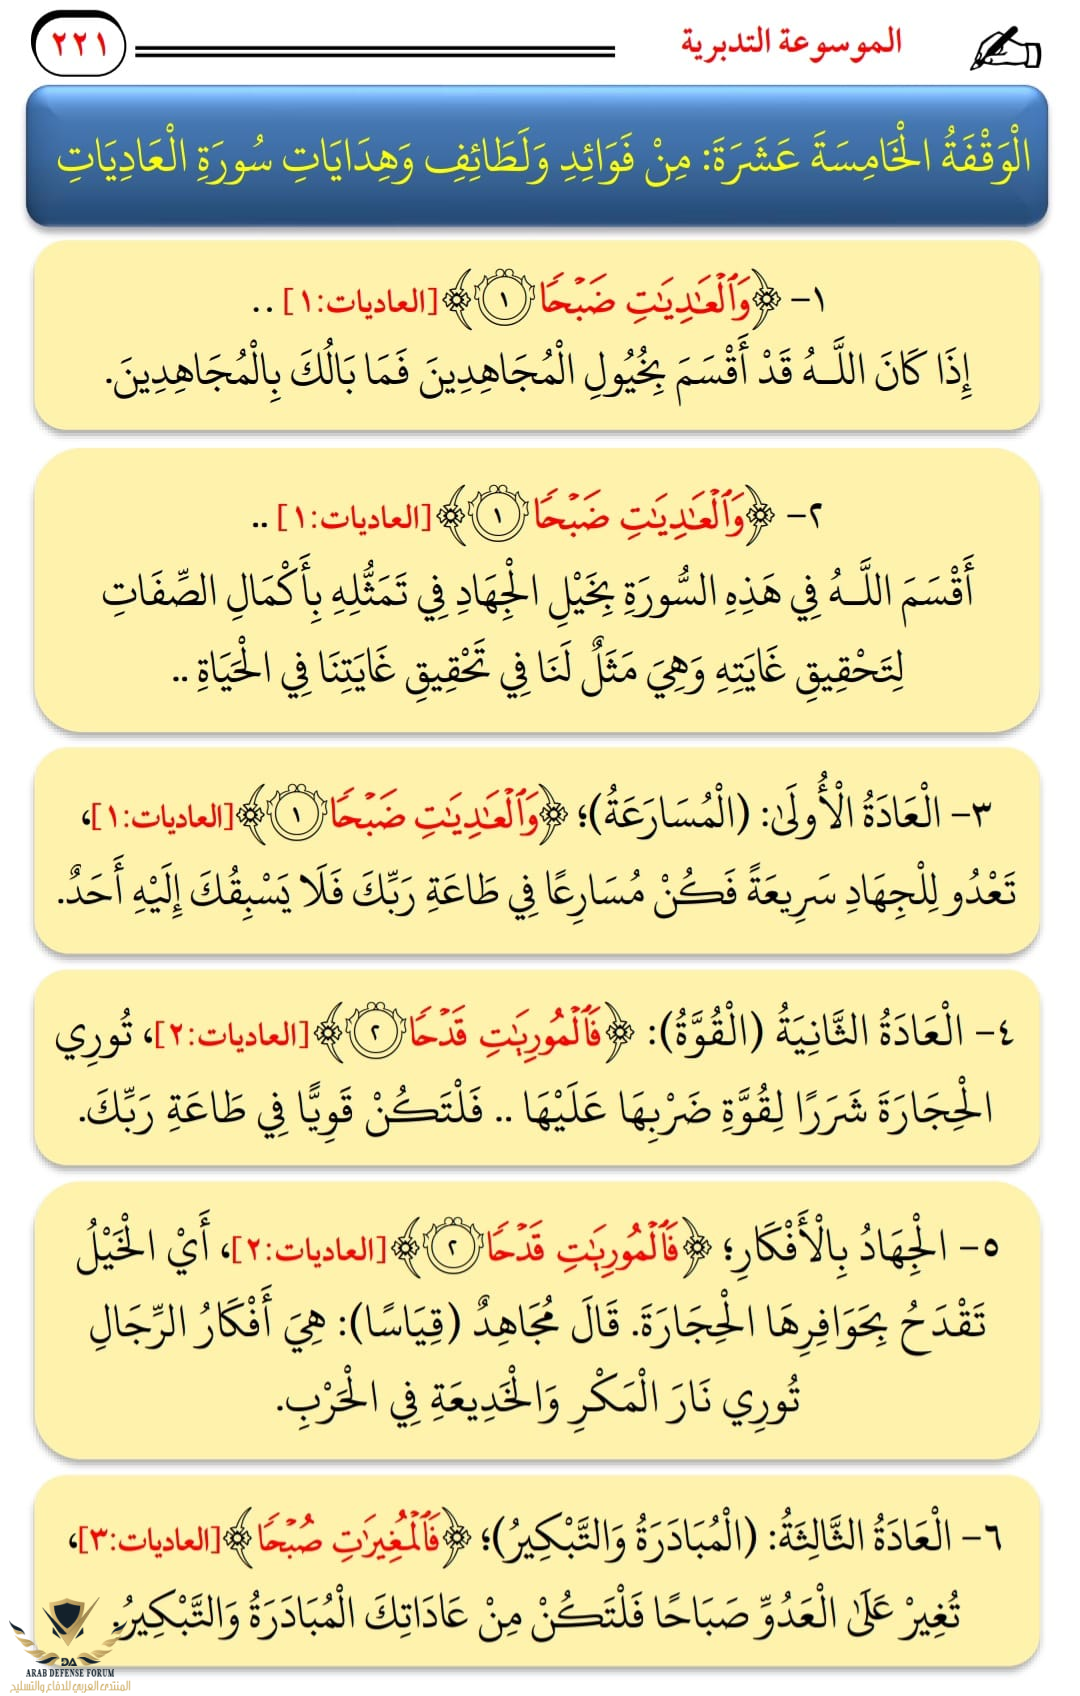 الموسوعة التدبرية
٢٢١
الْوَقْفَةُ الْخَامِسَةَ عَشَرَةَ: مِنْ فَوَائِدِ وَلَطَائِفِ وَهِدَايَاتِ سُورَةِ الْعَادِيَاتِ
١- ﴿وَٱلۡعَـٰدِيَـٰتِ ضَبۡحࣰا ١﴾ [العاديات:١] ..
إِذَا كَانَ اللَّـهُ قَدْ أَقْسَمَ بِخُيُولِ الْمُجَاهِدِينَ فَمَا بَالُكَ بِالْمُجَاهِدِينَ.
٢- ﴿وَٱلۡعَـٰدِيَـٰتِ ضَبۡحࣰا ١﴾ [العاديات:١] ..
أَقْسَمَ اللَّـهُ فِي هَذِهِ السُّورَةِ بِخَيْلِ الْجِهَادِ فِي تَمَثُّلِهِ بِأَكْمَالِ الصِّفَاتِ
لِتَحْقِيقِ غَايَتِهِ وَهِيَ مَثَلٌ لَنَا فِي تَحْقِيقِ غَايَتِنَا فِي الْحَيَاةِ ..
٣- الْعَادَةُ الْأُولَىٰ: (الْمُسَارَعَةُ)؛ ﴿وَٱلۡعَـٰدِيَـٰتِ ضَبۡحࣰا ١﴾ [العاديات:١]،
تَعْدُو لِلْجِهَادِ سَرِيعَةً فَكُنْ مُسَارِعًا فِي طَاعَةِ رَبِّكَ فَلَا يَسْبِقُكَ إِلَيْهِ أَحَدٌ.
٤- الْعَادَةُ الثَّانِيَةُ (الْقُوَّةُ): ﴿فَٱلۡمُورِيَـٰتِ قَدۡحࣰا ٢﴾ [العاديات:٢]، تُورِي
الْحِجَارَةَ شَرَرًا لِقُوَّةِ ضَرْبِهَا عَلَيْهَا .. فَلْتَكُنْ قَوِيًّا فِي طَاعَةِ رَبِّكَ.
٥- الْجِهَادُ بِالْأَفْكَارِ؛ ﴿فَٱلۡمُورِيَـٰتِ قَدۡحࣰا ٢﴾ [العاديات:٢]، أَيْ الْخَيْلُ
تَقْدَحُ بِحَوَافِرِهَا الْحِجَارَةَ. قَالَ مُجَاهِدٌ (قِيَاسًا): هِيَ أَفْكَارُ الرِّجَالِ
تُورِي نَارَ الْمَكْرِ وَالْخَدِيعَةِ فِي الْحَرْبِ.
٦- الْعَادَةُ الثَّالِثَةُ: (الْمُبَادَرَةُ وَالتَّبْكِيرُ)؛ ﴿فَٱلۡمُغِيرَٰتِ صُبۡحࣰا﴾ [العاديات:٣]،
تُغِيرْ عَلَىٰ الْعَدُوِّ صَبَاحًا فَلْتَكُنْ مِنْ عَادَاتِكَ الْمُبَادَرَةُ وَالتَّبْكِيرُ.
DA
ARAB DEFENSE FORUM
المنتدى العربي للدفاع والتسليح